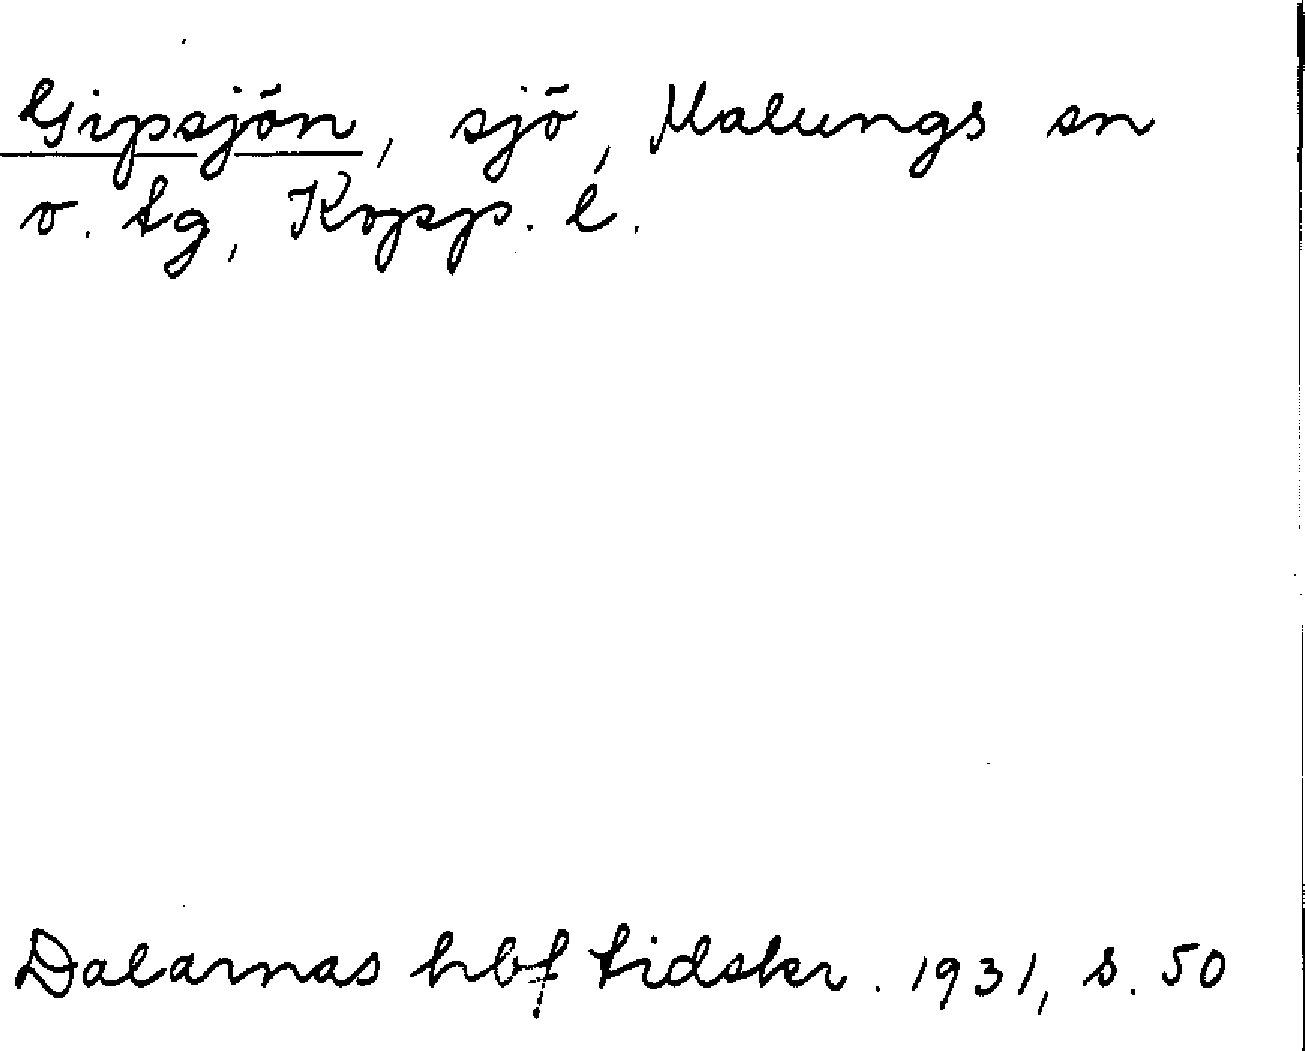 Gipsjön, sjö, Malungs sn
o. tg, Kopp. l.
Dalarnas hbf tidskr. 1931, s. 50